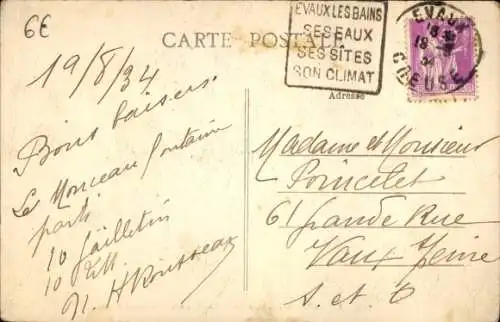 6€
CARTE POSTALE
EVAUX LES BAINS
SES EAUX
SES SITES
SON CLIMAT
EVAUX
18
CREUSE
Adresse
19/8/34
Bons baisers
Le Monceau Fontaine
parti
10
10
H Rousseau
Madame et Monsieur
Poincelet
61 Grande Rue
Vaux
S. et O